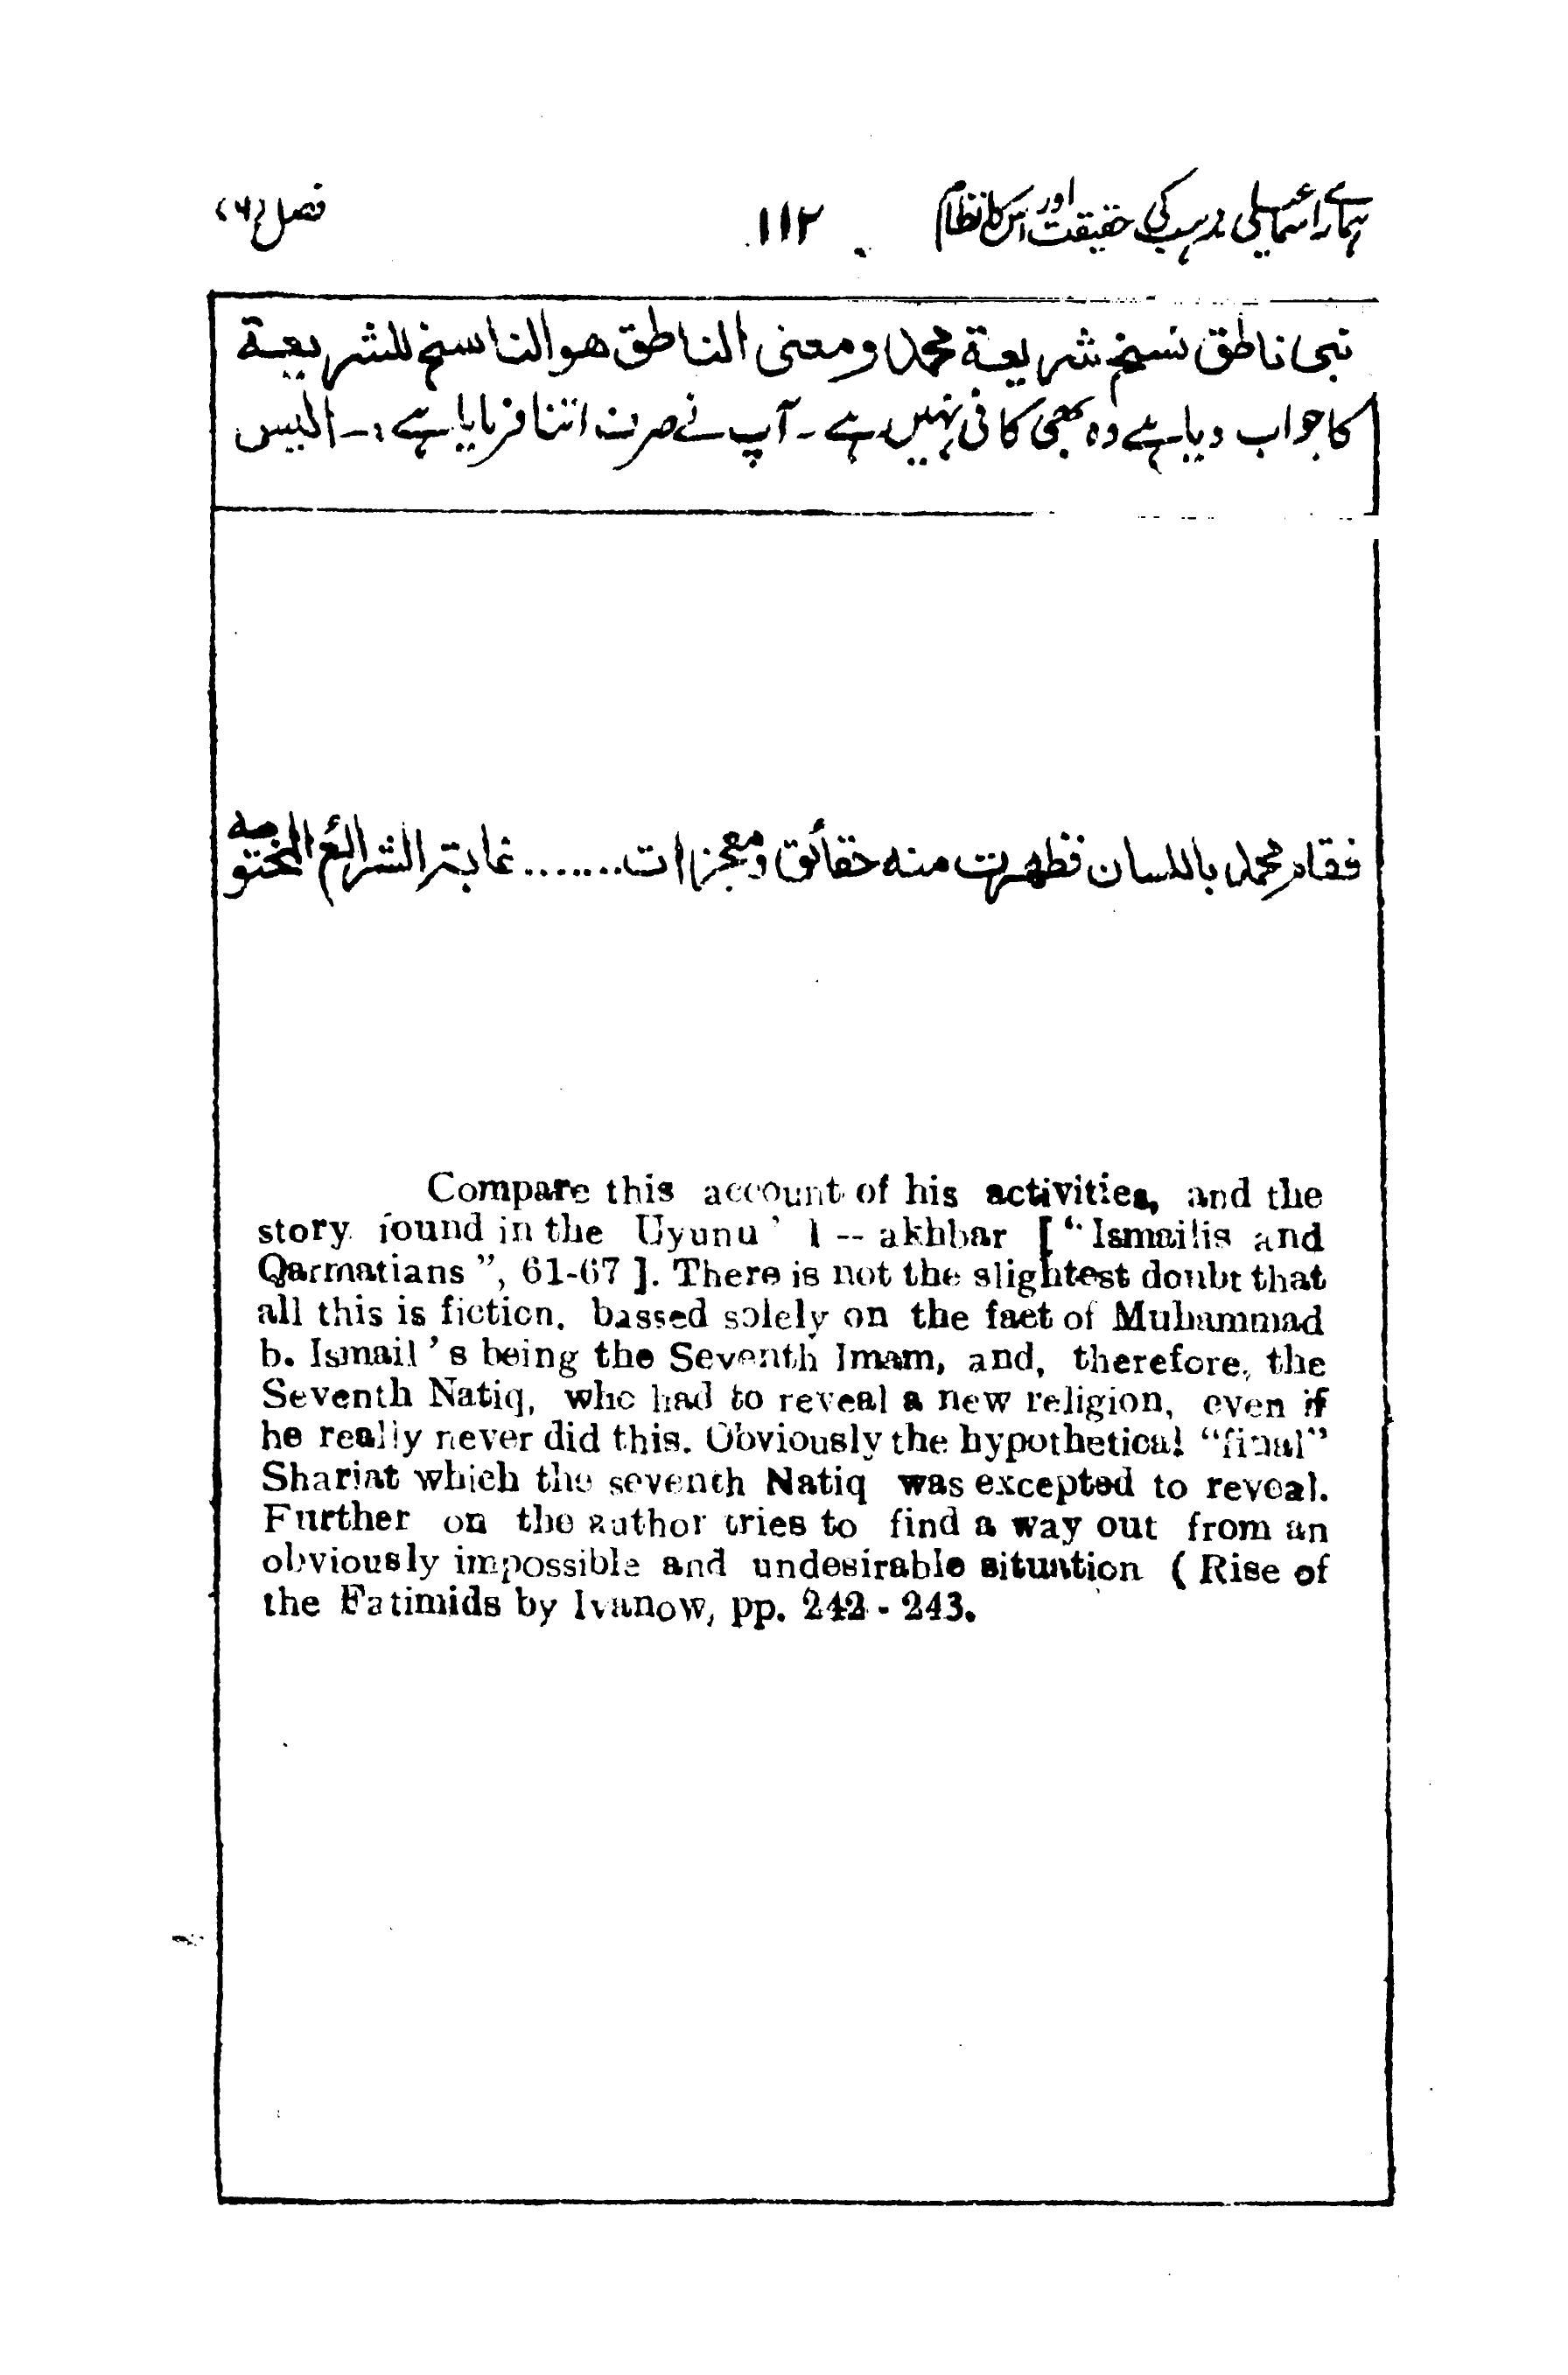 ہمارے اسمٰعیلی مذہب کی حقیقت اور اس کا نظام ۱۱۲ فصل (۶)
نبی ناطق نسخ شریعۃ محمد ومعنی الناطق هوالناسخ للشریعۃ
کا جواب دیا ہے وہ بھی کافی نہیں ہے ۔ آپ نے صرف اتنا فرمایا ہے :۔ الیس
فقام محمد باللسان فظهرت منه حقائق ومعجزات ....... غایۃ الشرائع المختومه
Compare this account of his activities, and the
story found in the Uyunu ' l -- akhbar [ " Ismailis and
Qarmatians ", 61-67 ]. There is not the slightest doubt that
all this is fiction. bassed solely on the faet of Muhammad
b. Ismail ' s being the Seventh Imam, and, therefore, the
Seventh Natiq, who had to reveal a new religion, even if
he really never did this. Obviously the hypothetical "final"
Shariat which the seventh Natiq was excepted to reveal.
Further on the author tries to find a way out from an
obviously impossible and undesirable situation ( Rise of
the Fatimids by Ivanow, pp. 242 - 243.